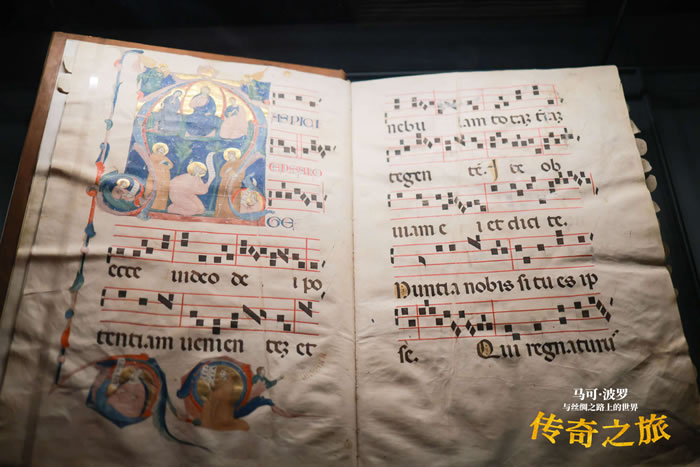 SPICI
ENS A LO
GE
ecce uideo de i po
tentiam uenien tez et
nebu lam totaz t̄raz
tegen te. I te ob
uiam e i et dici te.
Nuntia nobis si tu es ip
se. Qui regnaturus
马可·波罗
与丝绸之路上的世界
传奇之旅